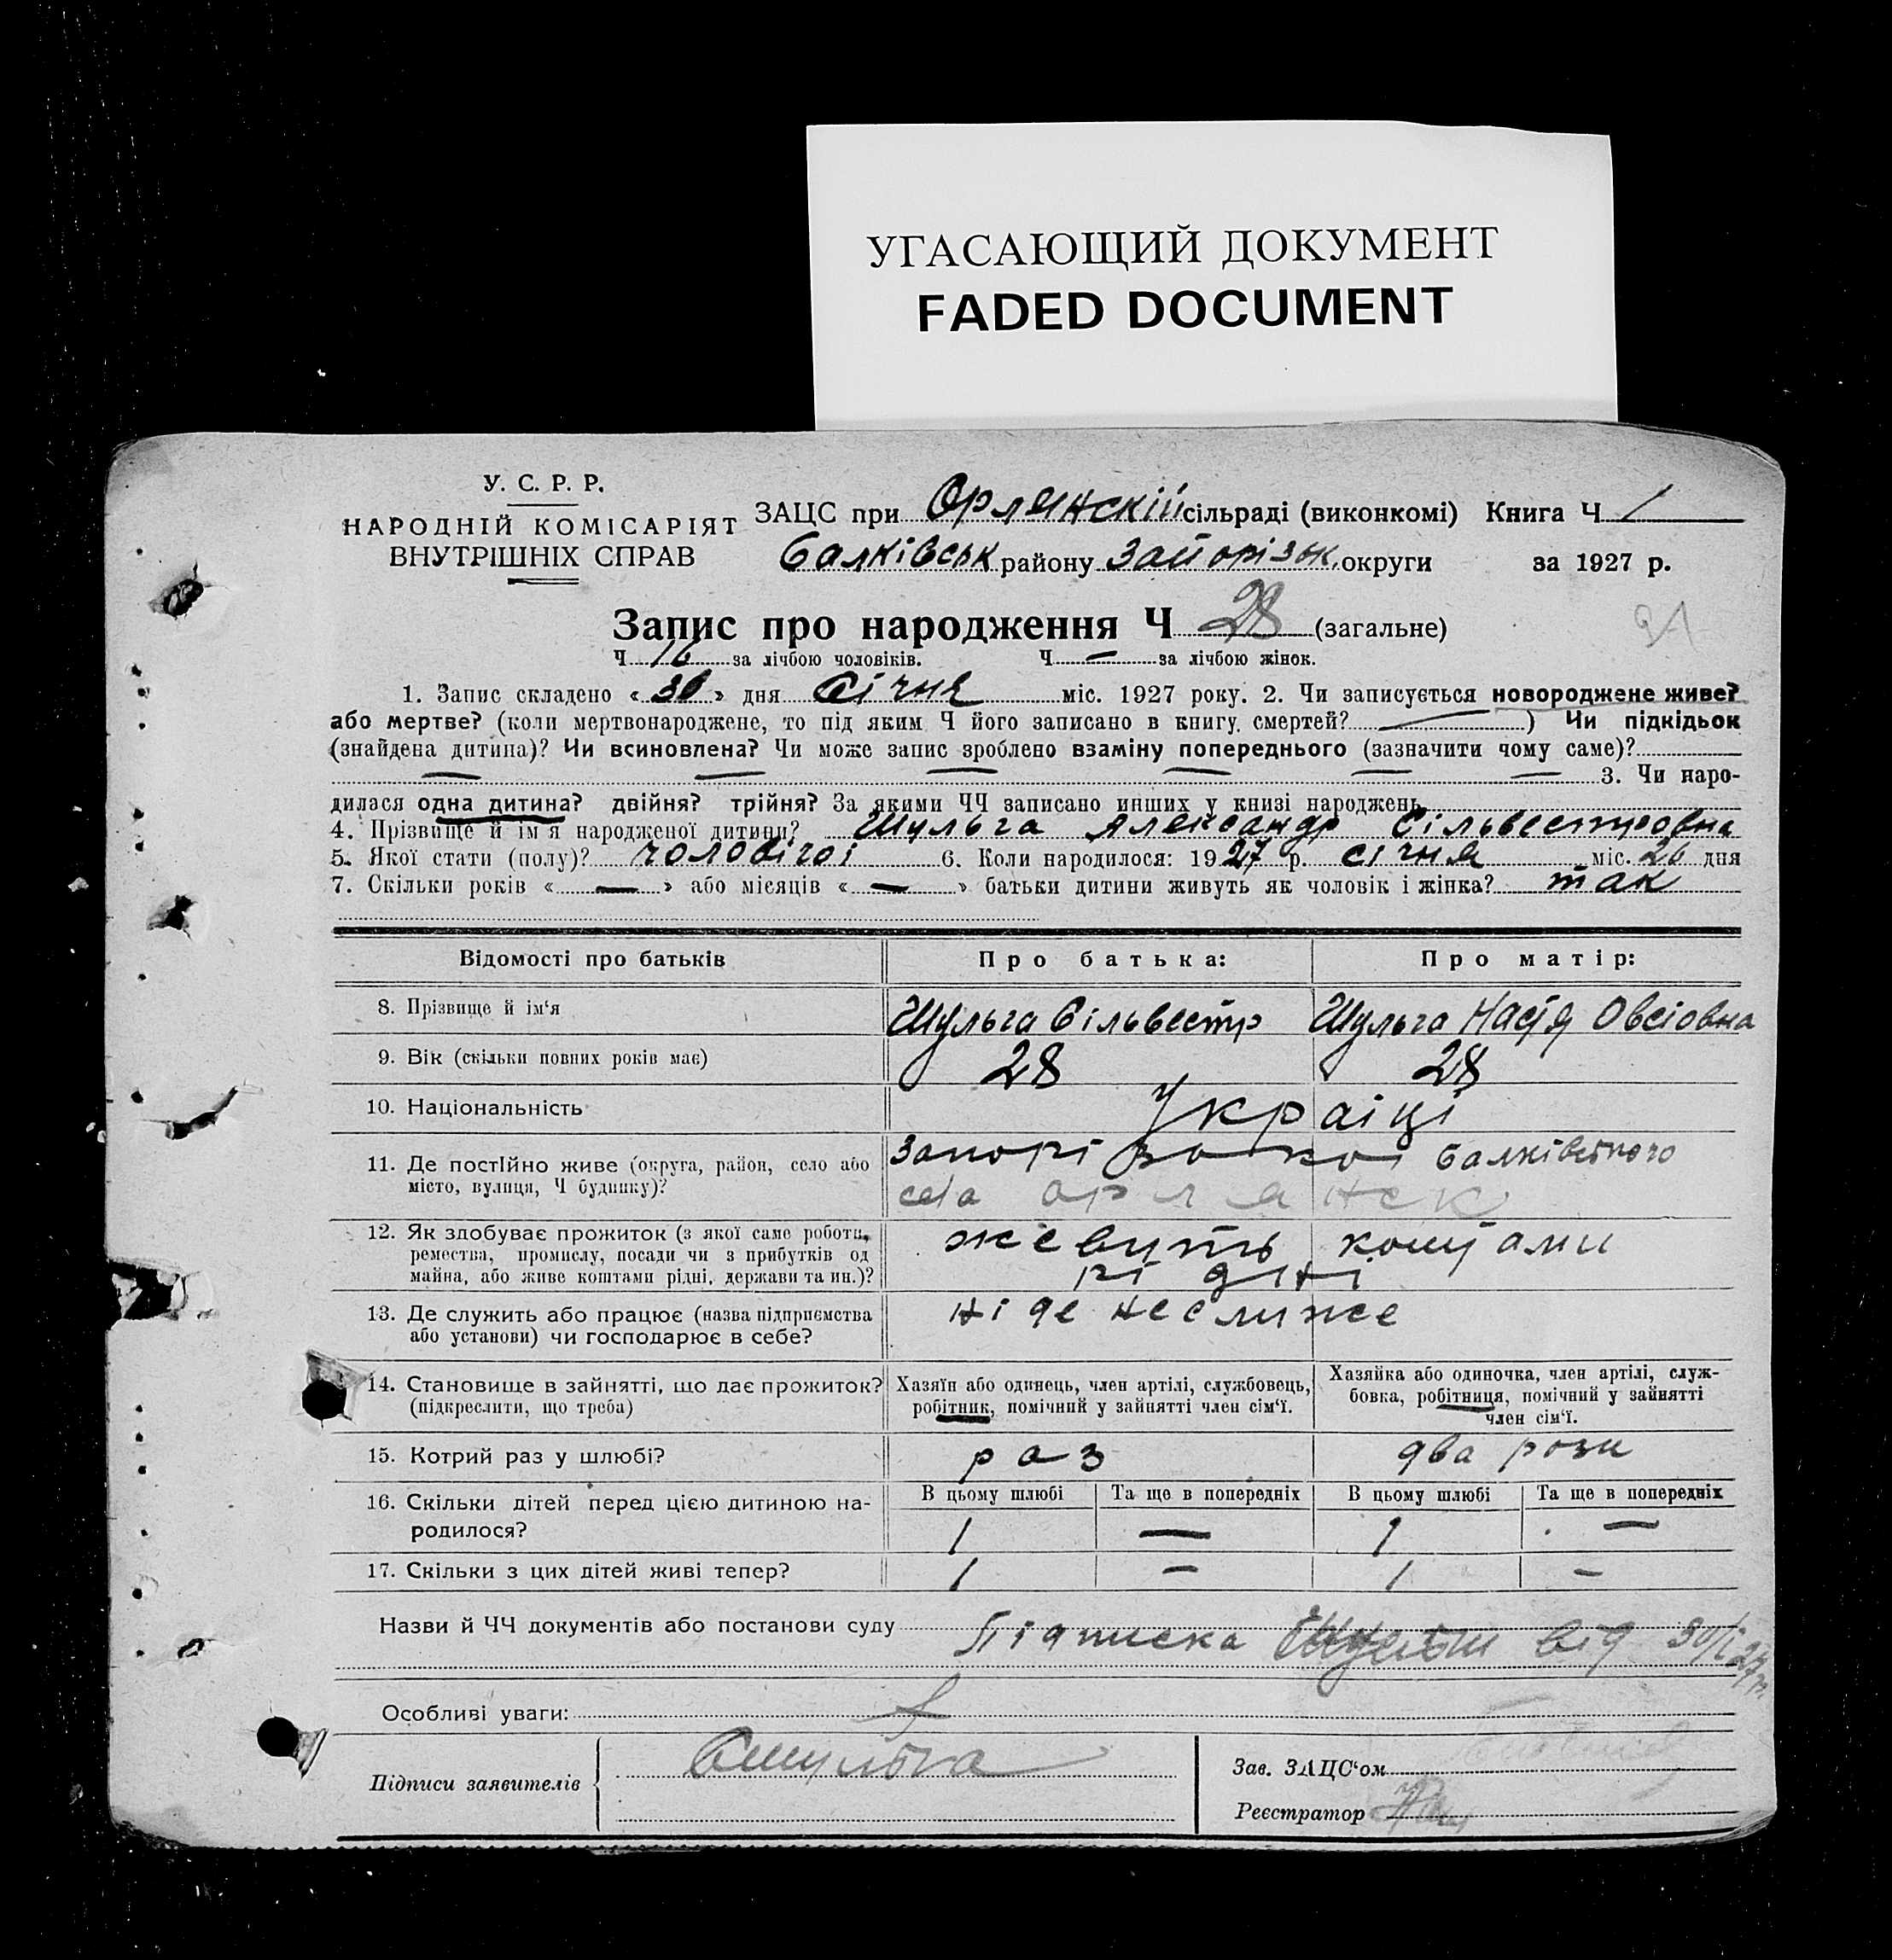 УГАСАЮЩИЙ ДОКУМЕНТ
FADED DOCUMENT
У. С. Р. Р.
НАРОДНІЙ КОМІСАРІЯТ
ВНУТРІШНІХ СПРАВ
ЗАЦС при Орлянскій сільраді (виконкомі) Книга Ч 1
Балківськ району Запорізьк. округи за 1927 р.
Запис про народження Ч 28 (загальне)
Ч 16 за лічбою чоловіків. Ч — за лічбою жінок.
1. Запис складено « 30 » дня Січня міс. 1927 року. 2. Чи записується новороджене живе?
або мертве? (коли мертвонароджене, то під яким Ч його записано в книгу смертей? —) Чи підкідьок
(знайдена дитина)? Чи всиновлена? Чи може запис зроблено взаміну попереднього (зазначити чому саме)?
— — — — — — 3. Чи наро-
дилася одна дитина? двійня? трійня? За якими ЧЧ записано инших у книзі народжень
4. Прізвище й ім'я народженої дитини? Шульга Александр Сільвестровна
5. Якої стати (полу)? чоловічоі 6. Коли народилося: 1927 р. січня міс. 26 дня
7. Скільки років « — » або місяців « — » батьки дитини живуть як чоловік і жінка? так
Відомості про батьків Про батька: Про матір:
8. Прізвище й ім'я Шульга Сільвестр Шульга Настя Овсіовна
9. Вік (скільки повних років має) 28 28
10. Національність Україці
11. Де постійно живе (округа, район, село або місто, вулиця, Ч будинку)? Запорізокоі Балківського
села Орлянск
12. Як здобуває прожиток (з якої саме роботи, ремества, промислу, посади чи з прибутків од майна, або живе коштами рідні, держави та ин.)? жевуть коштами
рідні
13. Де служить або працює (назва підприємства або установи) чи господарює в себе? ніде неслуже
14. Становище в зайнятті, що дає прожиток? (підкреслити, що треба)
Хазяїн або одинець, член артілі, службовець, робітник, помічний у зайнятті член сім'ї.
Хазяйка або одиночка, член артілі, служ-
бовка, робітниця, помічний у зайнятті
член сім'ї.
15. Котрий раз у шлюбі? раз два рози
16. Скільки дітей перед цією дитиною на-
родилося?
В цьому шлюбі Та ще в попередніх В цьому шлюбі Та ще в попередніх
1 — 1 —
17. Скільки з цих дітей живі тепер? 1 — 1 —
Назви й ЧЧ документів або постанови суду Підписка Шульги від 30/I 27 р.
Особливі уваги:
Підписи заявителів Сшульга
Зав. ЗАЦС'ом
Реєстратор